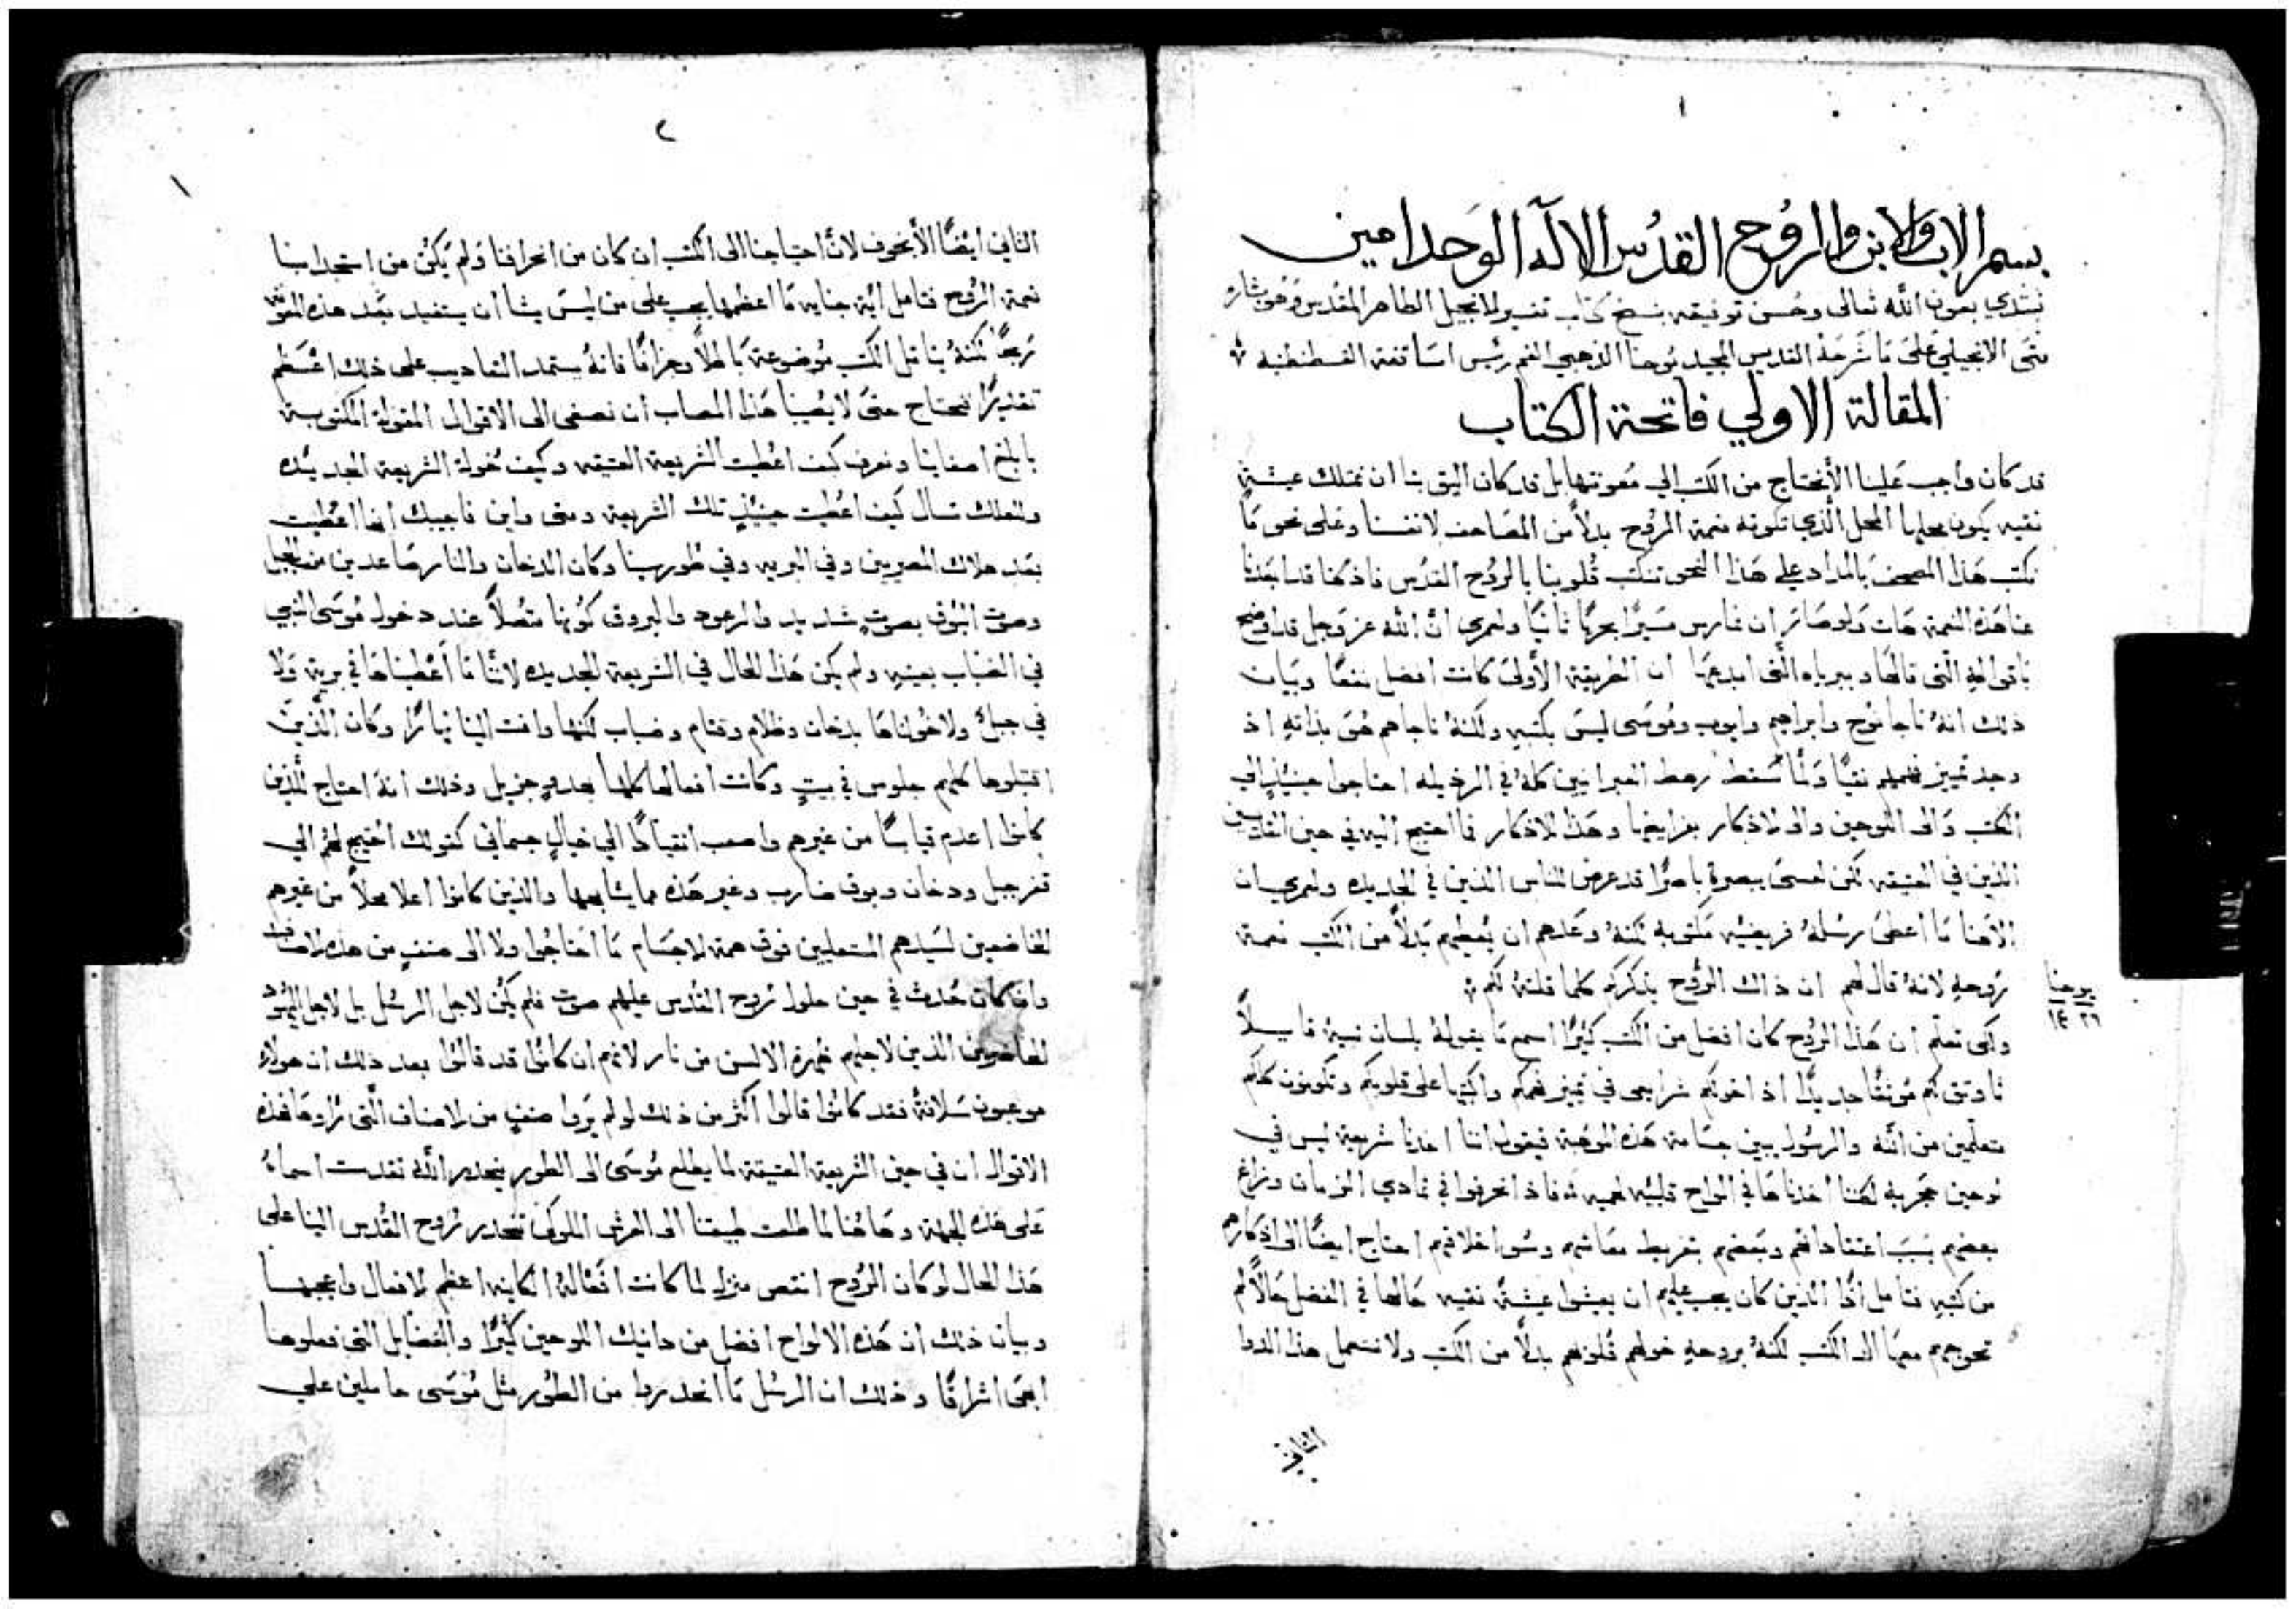 ١
بسم الاب والابن والروح القدس الاله الوحد امين
نبتدي بعون الله تعالى وحسن توفيقه بنسخ كتاب تفسير الانجيل الطاهر المقدس وهو بشارة
متى الانجيلي على ما شرحه القديس المجيد يوحنا الذهبي الفم رئيس اساقفة القسطنطنيه
المقالة الاولي فاتحة الكتاب
قد كان واجب علينا الا نحتاج من الكتب الي معونتها بل قد كان اليق بنا ان نمتلك عيشة
نقيه يكون محلها المحل الذي تكونه نعمة الروح بدلاً من المصاحف لانفسنا وعلى نحو ما
نكتب هذا المصحف بالمداد علي هذا النحو نكتب قلوبنا بالروح القدس فاذ كنا قد ابعدنا
عنا هذه النعمة هات ولو صائر ان نمارس مسيرًا بحريًا ثانيًا ولعمري ان الله عز وجل قد اوضح
باقواله التي قالها وببرياه التي ابدعها ان الطريقة الاولى كانت افضل نفعًا وبيان
ذلك انه ناجا نوح وابراهيم وايوب وموسى ليس بكتبه ولكنه ناجاهم هو بذاته اذ
وجد تمييز فهمهم نقيًا ولما سقط رهط العبرانيين كله في الرذيله احتاجوا حينيذٍ الي
الكتب والى اللوحين والى الاذكار بفرايضها وهذا الاذكار فما احتيج اليه في حين القديسين
الذين في العتيقه لكن لعسى يبصره باصرًا قد عرض للناس الذين في الجديده ولعمري ان
الاهنا ما اعطى رسله فريضيه مكتوبه لكنه وعدهم ان يعطيهم بدلاً من الكتب نعمة
روحه لانه قال لهم ان ذاك الروح يذكركم كلما قلته لكم
يوحنا
٢٦ ١٤
ولكى تعلم ان هذا الروح كان افضل من الكتب كثيرًا اسمع ما يقوله بلسان نبيه قايلاً
ثاوثق لكم موثقًا جديدًا اذ اخولكم شرايعي في تمييز فهمكم واكتبها على قلوبكم وتكونون كلكم
متعلمين من الله والرسول يبين جسامة هذه الموهبة فيقول اننا اخذنا شريعة ليس في
لوحين حجرية لكننا اخذناها في الواح قلبيه لحميه فاذ انحرفوا في تمادي الزمان وزاغ
بعضهم بسبب اعتقاداتهم وبعضهم بتفريط معاشهم وسوا اخلاقهم احتاج ايضًا الى اذكارهم
من كتبه فتامل اذًا الذين كان يجب عليهم ان يعيشوا عيشةً نقيه حالها في الفضل حالاً لم
تحوجهم معها الى الكتب لكنه بروحه خولهم قلوبهم بدلاً من الكتب ولا نستعمل هذا الدوا
الثاني
٢
١
الثاني ايضًا الا نخوف لان احتياجنا الى الكتب ان كان من انحرافنا ولم يكن من استجدابنا
نعمة الروح فتامل اية جنايه ما اعظمها يجب على من ليس يشا ان يستفيد بعد هذه المعونه
ربحًا لكنه يتامل الكتب موضوعة باطلاً وجزافًا فانه يستمد التعاديب على ذلك اعظم
تقديرًا فنحتاج حتى لا يصيبنا هذا المصاب ان نصغى الى الاقوال المقولة المكتوبة
بابلغ اصغاينا ونعرف كيف اعطيت الشريعة العتيقه وكيف خولت الشريعة الجديده
ولعلك تسال كيف اعطيت حينيذٍ تلك الشريعة ومتى واين فاجيبك انها اعطيت
بعد هلاك المصريين وفي البريه وفي طور سينا وكان الدخان والنار صاعدين من الجبل
وصوت البوق بصوتٍ شديد والرعود والبروق كونها متصلاً عند دخول موسى النبي
في الضباب بعينه ولم يكن هذا الحال في الشريعة الجديده لاننا ما اعطيناها في برية ولا
في جبل ولا خولناها بدخان وظلام وقتام وضباب لكنها وافت الينا نهارًا وكان الذين
اقتبلوها كلهم جلوس في بيتٍ وكانت افعالها كلها بهدوٍ جزيل وذلك انه احتاج للذين
كانوا اعدم قياسًا من غيرهم واصعب انقيادًا الي خيالٍ جسماني كقولك احتيج لهم الي
قفر جبل ودخان وبوق ضارب وغير هذه مما يشابهها والذين كانوا اعلا محلاً من غيرهم
الخاضعين لسيدهم المستعلين فوق همة الاجسام ما احتاجوا ولا الى صنفٍ من هذه الاصناف
وان كان حدث في حين حلول روح القدس عليهم صوت فلم يكن لاجل الرسل بل لاجل اليهود
الحاضرين الذين لاجلهم ظهرة الالسن من نار لانهم ان كانوا قد قالوا بعد ذلك ان هولاي
موعبون سلافةً فقد كانوا قالوا اكثر من ذلك لو لم يروا صنفٍ من الاصناف التى راوها فهذه
الاقوال ان في حين الشريعة العتيقة لما يطلع موسى الى الطور ينحدر الله تقدست اسماه
على هذه الجهة وهاهنا لما طلعت طبيعتنا الى العرش الملوكي تنحدر روح القدس الينا على
هذا الحال لو كان الروح انقص منزله لما كانت افعاله الكاينه اعظم الافعال واعجبها
وبيان ذلك ان هذه الالواح افضل من دانيك اللوحين كثيرًا والفضايل التى فعلوها
ابهى اشراقًا وذلك ان الرسل ما انحدروا من الطور مثل موسى حاملين على